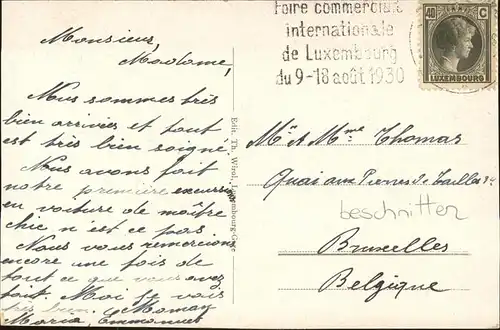 Foire commerciale
internationale
de Luxembourg
du 9-18 août 1930
40 C
LUXEMBOURG
Monsieur,
Madame,
Nous sommes très
bien arrivés et tout
est très bien soigné
Nous avons fait
notre première excursion
en voiture de maître
chic n'est ce pas.
Nous vous remercions
encore une fois de
tout ce que vous avez
fait. Moi je vais
très bien. Maman
Maria, Emmanuel
Edit. Th. Wirol, Luxembourg-Gare
Mr & Mme Thomas
Quai aux Pierres de Tailles 34
beschnitten
Bruxelles
Belgique